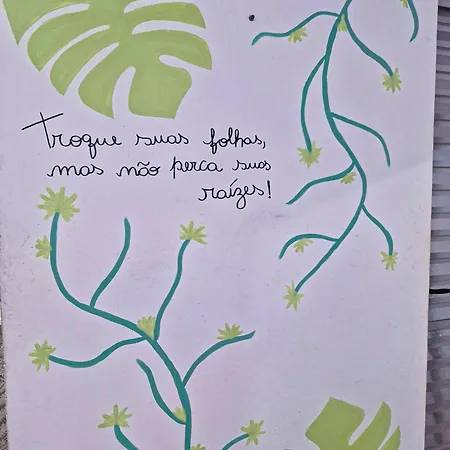 Troque suas folhas,
mas não perca suas
raízes!